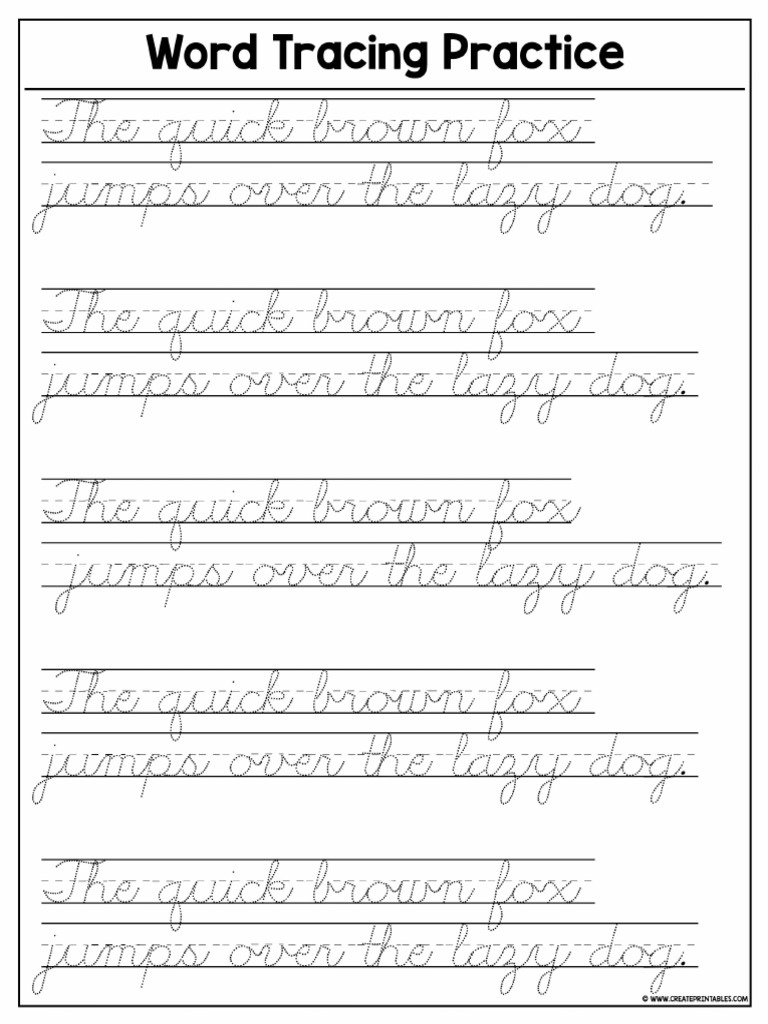 Word Tracing Practice
The quick brown fox
jumps over the lazy dog.
The quick brown fox
jumps over the lazy dog.
The quick brown fox
jumps over the lazy dog.
The quick brown fox
jumps over the lazy dog.
The quick brown fox
jumps over the lazy dog.
© WWW.CREATEPRINTABLES.COM